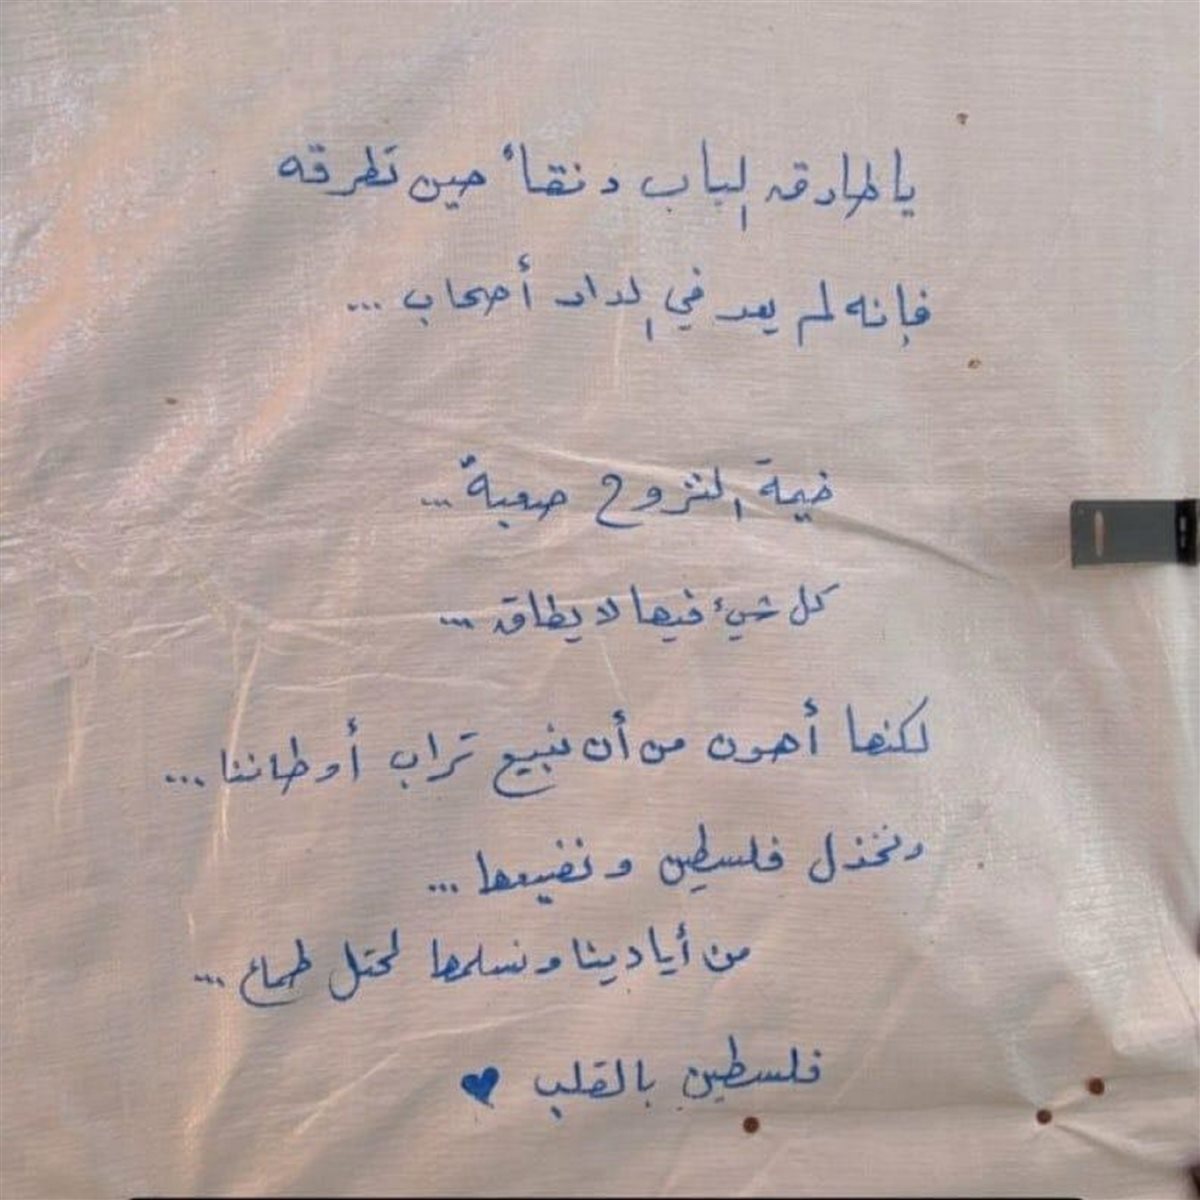 يا طارق الباب رفقاً حين تطرقه
فإنه لم يعد في الدار أصحاب ...
خيمة النزوح صعبةٌ ...
كل شيء فيها لا يطاق ...
لكنها أهون من أن نبيع تراب أوطاننا ...
ونخذل فلسطين ونضيعها ...
من أيادينا ونسلمها لمحتل طماع ...
فلسطين بالقلب ♥